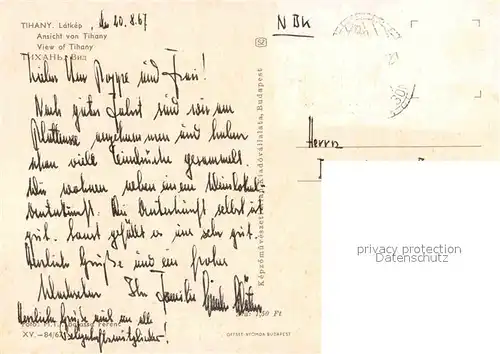 TIHANY. Látkép
Ansicht von Tihany
View of Tihany
ТИХАНЬ. Вид
den 20.8.67
N BK
Lieber Herr Poppe und Frau!
Nach guter Fahrt sind wir am
Plattensee angekommen und haben
schon viele Eindrücke gesammelt.
Wir wohnen neben einem Weinlokal
Unterkunft. Die Unterkunft selbst ist
gut. Sonst gefällt es uns sehr gut.
Herzliche Grüße und ein frohes
Ihre Familie
Herzliche Grüße auch an alle
Belegschaftsmitglieder!
Képzőművészeti Alap Kiadóvállalata, Budapest
Herrn
privacy protection
oldthing.de
Ára: 1,50 Ft
Foto: M.T.I. Ferenc
XV.—84/6
OFFSET-NYOMDA BUDAPEST